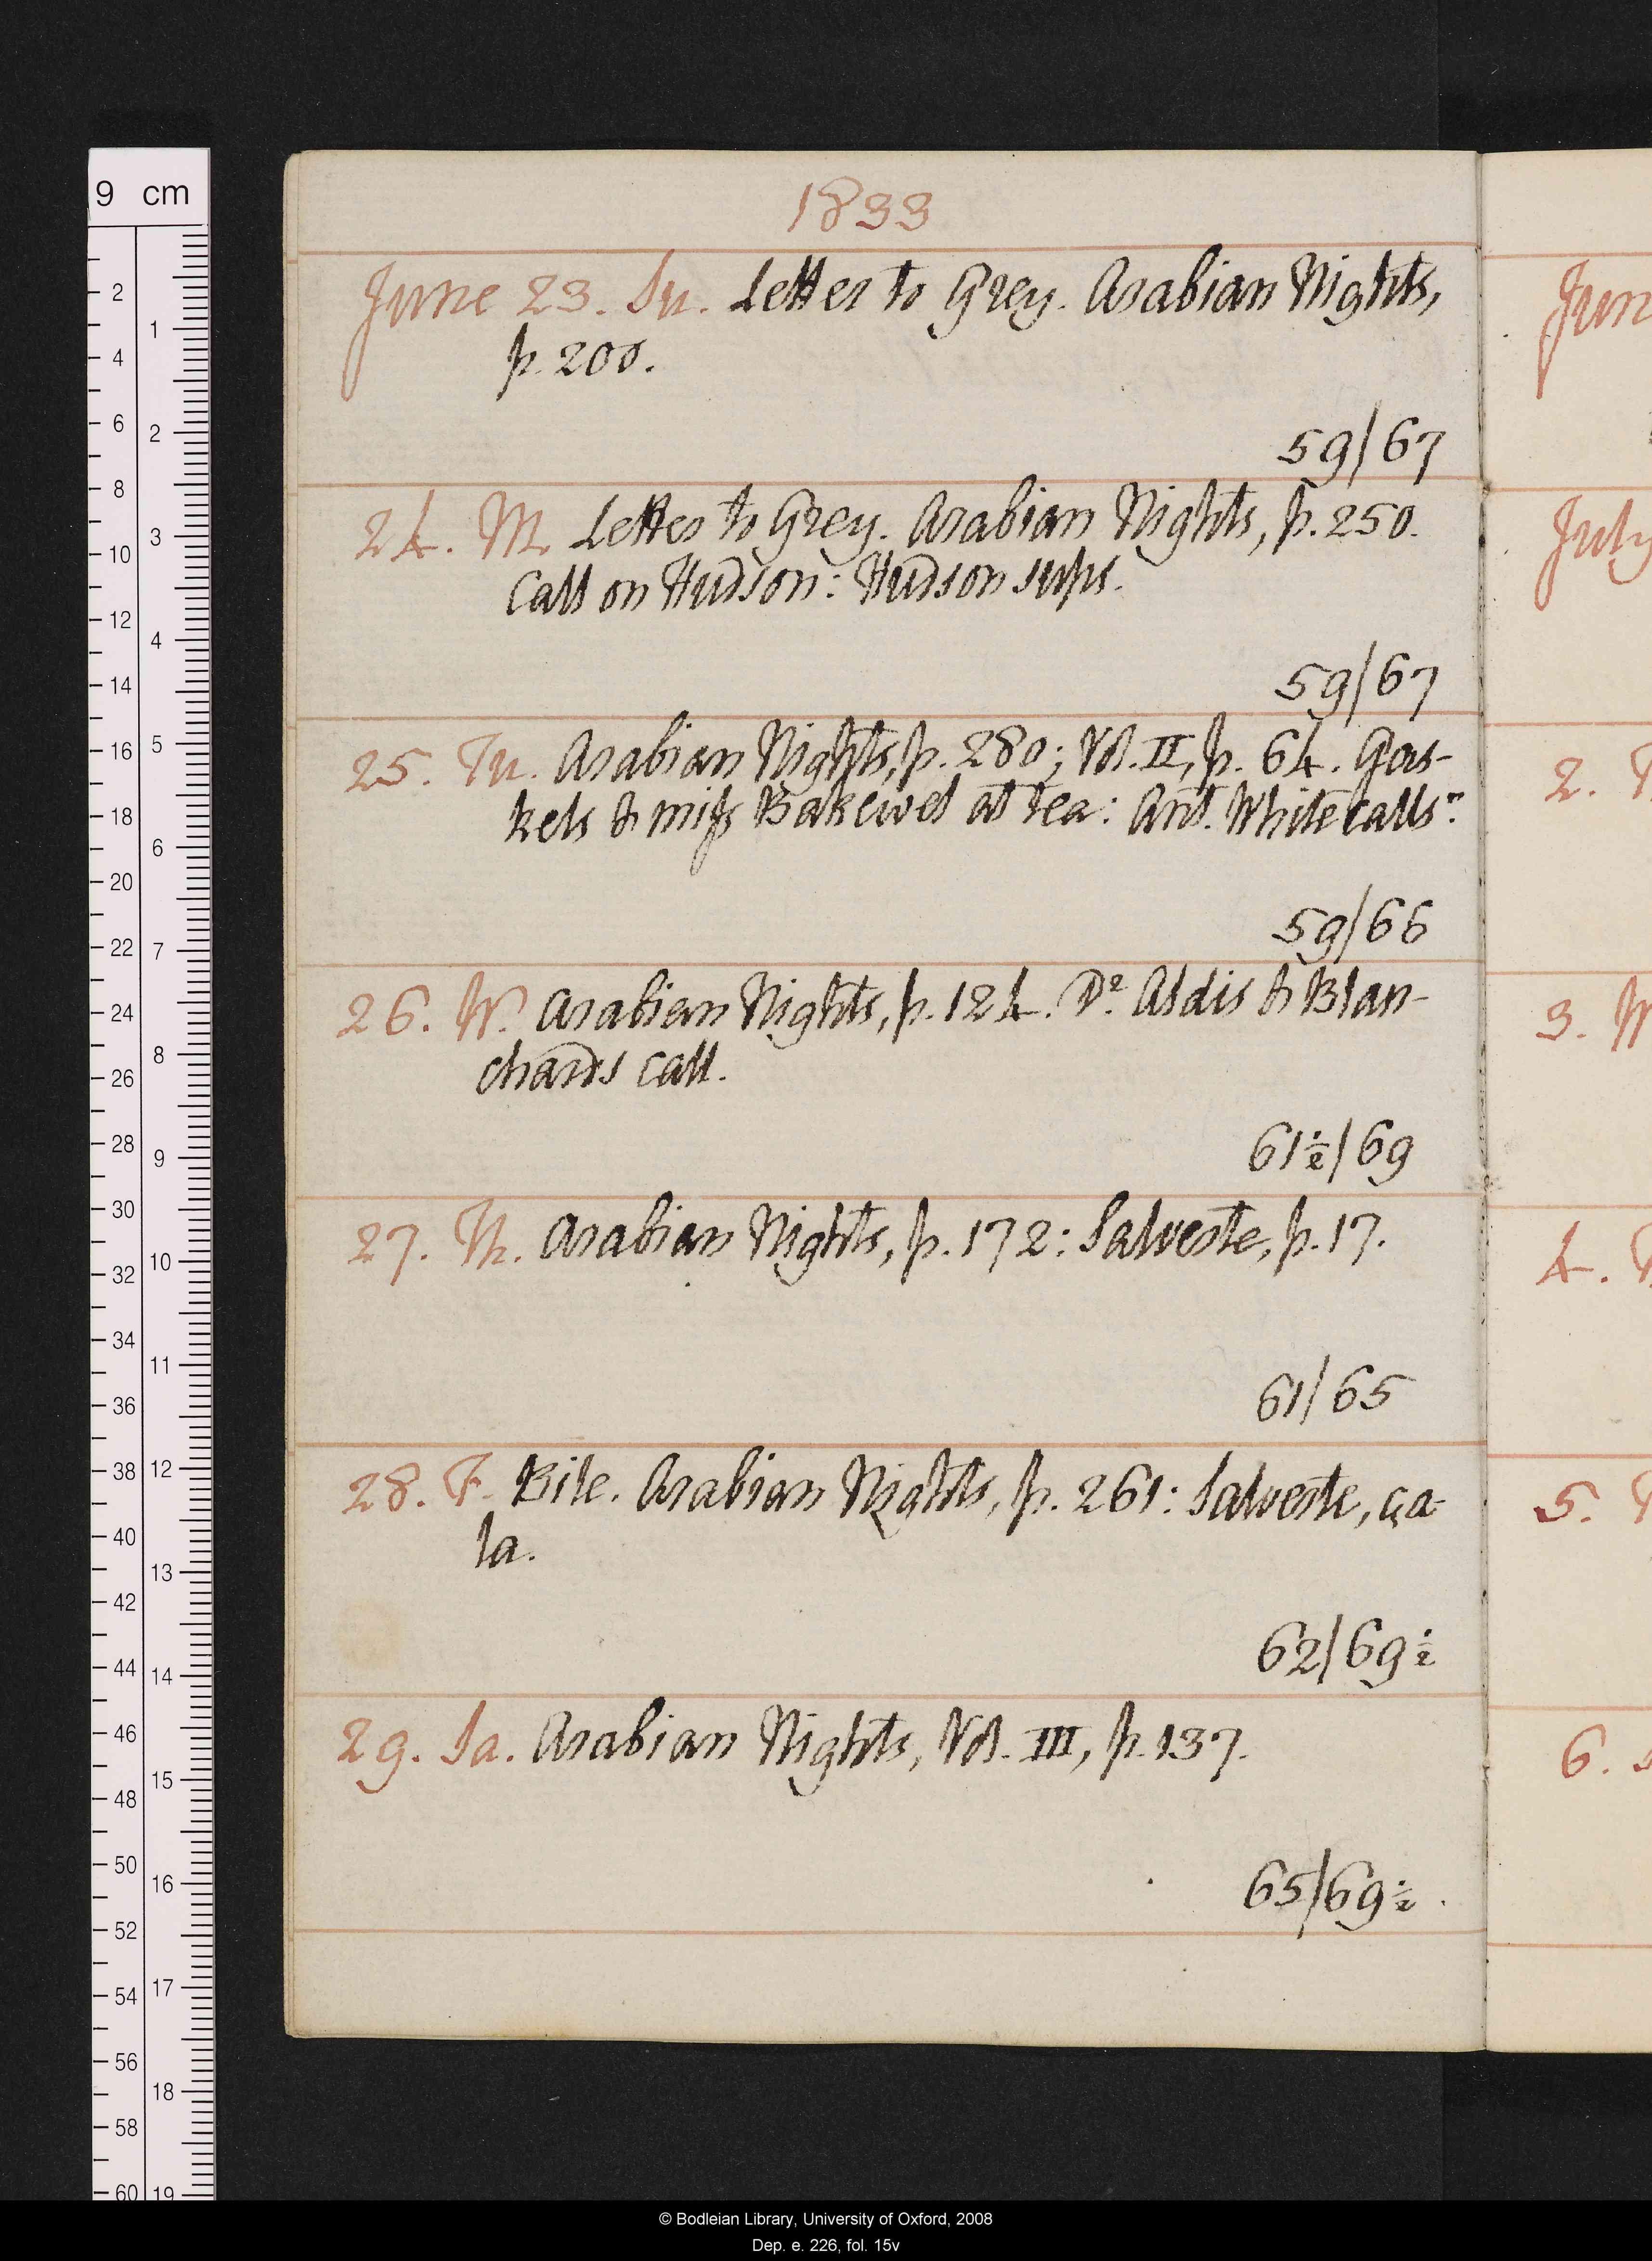 9 cm
1833
June 23. Su. Letter to Grey. Arabian Nights,
p. 200.
59/67
24. M. Letter to Grey. Arabian Nights, p. 250.
Call on Hudson: Hudson sups.
59/67
25. Tu. Arabian Nights, p. 280; Vol. II, p. 64. Gas-
kels & miss Bakewel at tea: Ant. White calls n.
59/66
26. W. Arabian Nights, p. 124. Dr Aldis & Blan-
chards call.
61½/69
27. Th. Arabian Nights, p. 172: Salverte, p. 17.
61/65
28. F. Bile. Arabian Nights, p. 261: Salverte, ça
la.
62/69½
29. Sa. Arabian Nights, Vol. III, p. 137.
65/69½.
Jun
July
2. T
3. W
4. T
5.
6. S
© Bodleian Library, University of Oxford, 2008
Dep. e. 226, fol. 15v